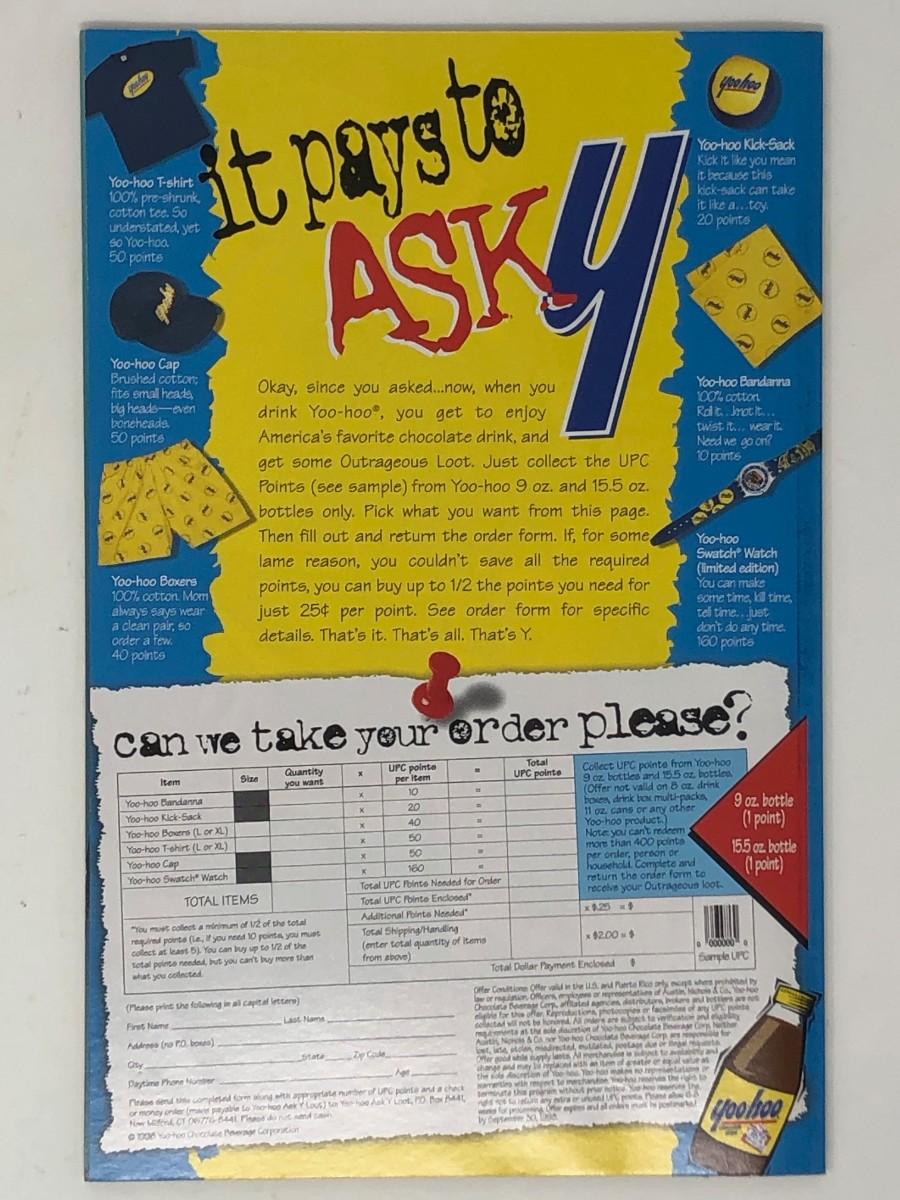 it pays to
ASK Y
yoohoo
Yoo-hoo T-shirt
100% pre-shrunk,
cotton tee. So
understated, yet
so Yoo-hoo.
50 points
yoohoo
Yoo-hoo Cap
Brushed cotton;
fits small heads,
big heads—even
boneheads.
50 points
Yoo-hoo Boxers
100% cotton. Mom
always says wear
a clean pair, so
order a few.
40 points
Okay, since you asked...now, when you
drink Yoo-hoo®, you get to enjoy
America's favorite chocolate drink, and
get some Outrageous Loot. Just collect the UPC
Points (see sample) from Yoo-hoo 9 oz. and 15.5 oz.
bottles only. Pick what you want from this page.
Then fill out and return the order form. If, for some
lame reason, you couldn't save all the required
points, you can buy up to 1/2 the points you need for
just 25¢ per point. See order form for specific
details. That's it. That's all. That's Y.
yoohoo
Yoo-hoo Kick-Sack
Kick it like you mean
it because this
kick-sack can take
it like a...toy.
20 points
Yoo-hoo Bandanna
100% cotton.
Roll it...knot it...
twist it... wear it.
Need we go on?
10 points
Yoo-hoo
Swatch® Watch
(limited edition)
You can make
some time, kill time,
tell time...just
don't do any time.
160 points
can we take your order please?
Item Size Quantity you want x UPC points per item = Total UPC points
Yoo-hoo Bandanna x 10 =
Yoo-hoo Kick-Sack x 20 =
Yoo-hoo Boxers (L or XL) x 40 =
Yoo-hoo T-shirt (L or XL) x 50 =
Yoo-hoo Cap x 50 =
Yoo-hoo Swatch® Watch x 160 =
TOTAL ITEMS
Total UPC Points Needed for Order
Total UPC Points Enclosed*
Additional Points Needed* x $.25 = $
Total Shipping/Handling
(enter total quantity of items
from above) x $2.00 = $
Total Dollar Payment Enclosed $
*You must collect a minimum of 1/2 of the total
required points (i.e., if you need 10 points, you must
collect at least 5). You can buy up to 1/2 of the
total points needed, but you can't buy more than
what you collected.
Collect UPC points from Yoo-hoo
9 oz. bottles and 15.5 oz. bottles.
(Offer not valid on 8 oz. drink
boxes, drink box multi-packs,
11 oz. cans or any other
Yoo-hoo product.)
Note: you can't redeem
more than 400 points
per order, person or
household. Complete and
return the order form to
receive your Outrageous loot.
9 oz. bottle
(1 point)
15.5 oz. bottle
(1 point)
0 00000 0
Sample UPC
(Please print the following in all capital letters)
First Name Last Name
Address (no P.O. boxes)
City State Zip Code
Daytime Phone Number Age
Please send this completed form along with appropriate number of UPC points and a check
or money order (made payable to Yoo-hoo Ask Y Loot) to: Yoo-hoo Ask Y Loot, P.O. Box 8441,
New Milford, CT 06776-8441. Please do not send cash.
Yoo-hoo Chocolate Beverage Corporation
Offer Conditions: Offer valid in the U.S. and Puerto Rico only, except where prohibited by
law or regulation. Officers, employees or representatives of Austin, Nichols & Co., Yoo-hoo
Chocolate Beverage Corp., affiliated agencies, distributors, brokers and bottlers are not
eligible for this offer. Reproductions, photocopies or facsimiles of any UPC points
collected will not be honored. All orders are subject to verification and eligibility
requirements at the sole discretion of Yoo-hoo Chocolate Beverage Corp. Neither
Austin, Nichols & Co. nor Yoo-hoo Chocolate Beverage Corp. are responsible for
lost, late, stolen, misdirected, mutilated, postage due or illegal requests.
Offer good while supply lasts. All merchandise is subject to availability and
change and may be replaced with an item of greater or equal value at
the sole discretion of Yoo-hoo. Yoo-hoo makes no representations or
warranties with respect to merchandise. Yoo-hoo reserves the right to
terminate this program without prior notice. Yoo-hoo reserves the
right not to return any extra or unused UPC points. Please allow
weeks for processing. Offer expires and all orders must be postmarked
by September 30,
yoohoo